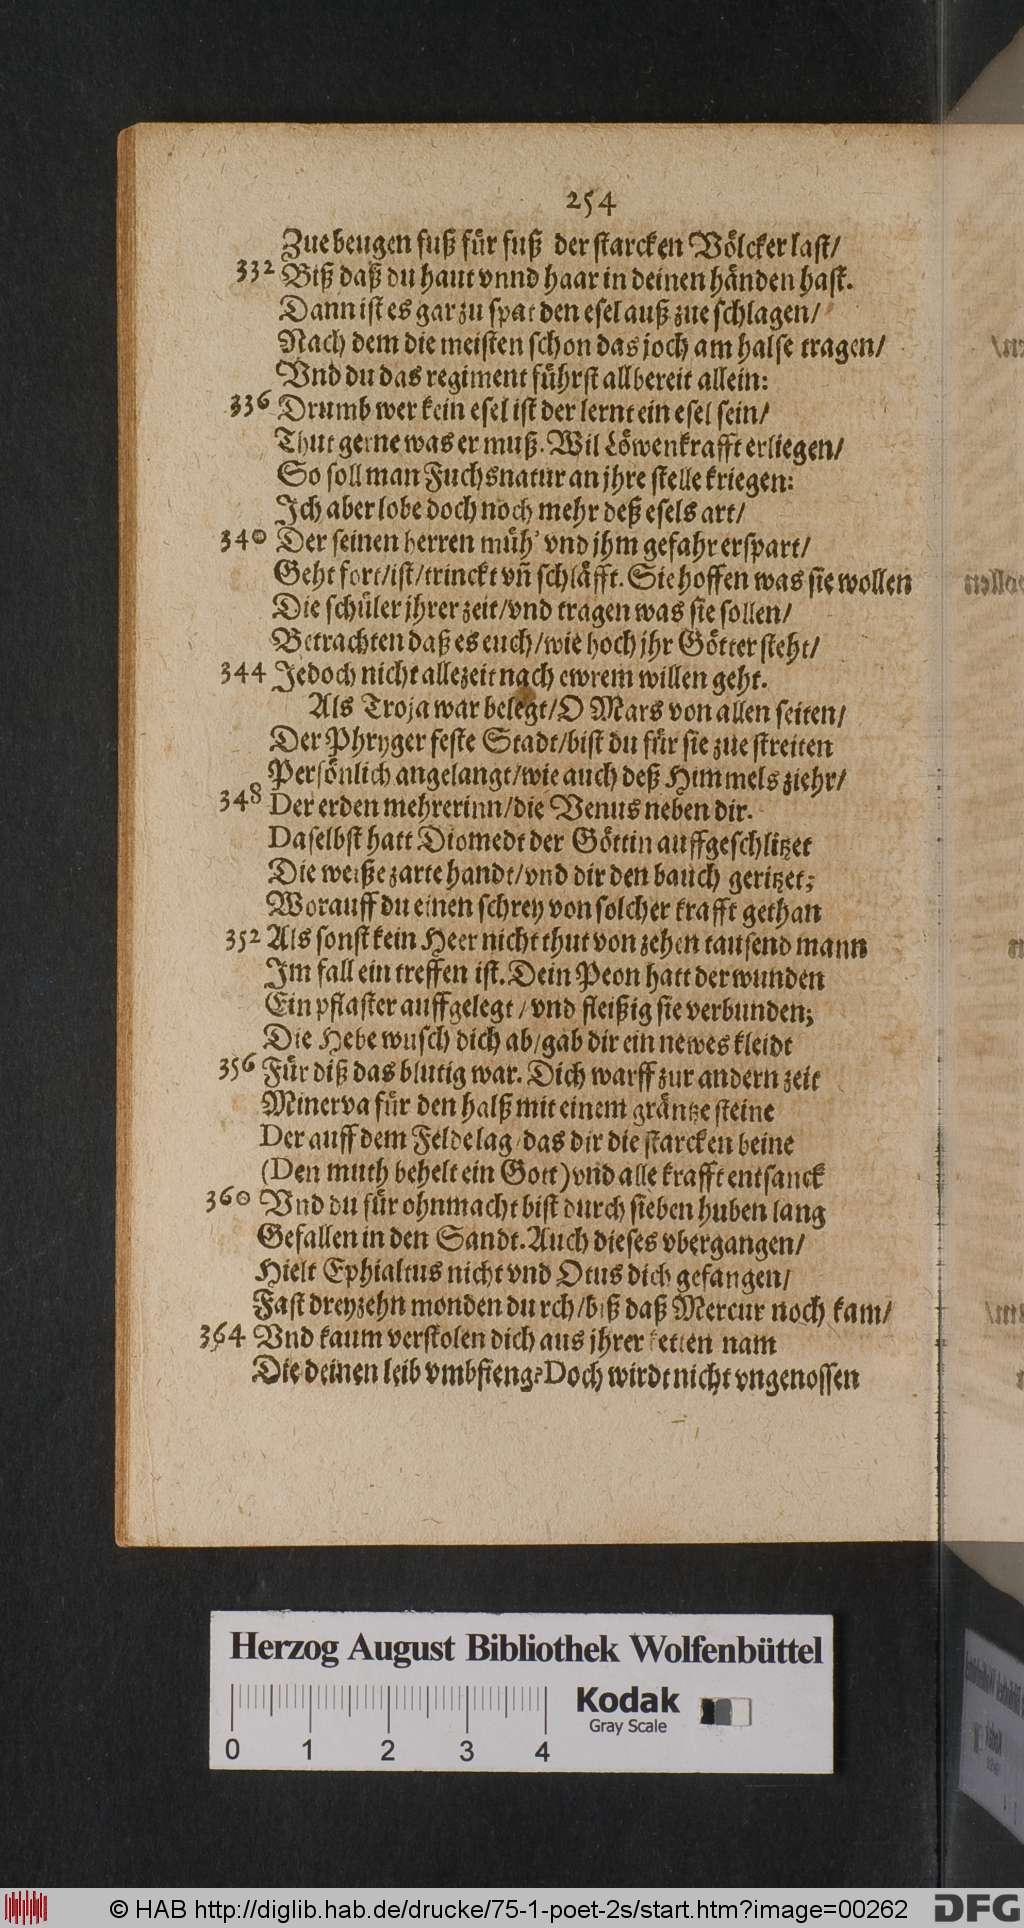 254
Zue beugen fuß für fuß der starcken Völcker last/
332 Biß daß du haut vnnd haar in deinen händen hast.
Dann ist es gar zu spat den esel auß zue schlagen/
Nach dem die meisten schon das joch am halse tragen/
Vnd du das regiment führst allbereit allein:
336 Drumb wer kein esel ist der lernt ein esel sein/
Thut gerne was er muß. Wil Löwenkrafft erliegen/
So soll man Fuchsnatur an jhre stelle kriegen:
Ich aber lobe doch noch mehr deß esels art/
340 Der seinen herren müh' vnd jhm gefahr erspart/
Geht fort/ ist/ trinckt vñ schläfft. Sie hoffen was sie wollen
Die schüler jhrer zeit/ vnd tragen was sie sollen/
Betrachten daß es euch/ wie hoch jhr Götter steht/
344 Jedoch nicht allezeit nach ewrem willen geht.
Als Troja war belegt/ O Mars von allen seiten/
Der Phryger feste Stadt/ bist du für sie zue streiten
Persönlich angelangt/ wie auch deß Himmels ziehr/
348 Der erden mehrerinn/ die Venus neben dir.
Daselbst hatt Diomedt der Göttin auffgeschlitzet
Die weiße zarte handt/ vnd dir den bauch geritzet;
Worauff du einen schrey von solcher krafft gethan
352 Als sonst kein Heer nicht thut von zehen tausend mann
Im fall ein treffen ist. Dein Peon hatt der wunden
Ein pflaster auffgelegt/ vnd fleißig sie verbunden;
Die Hebe wusch dich ab/ gab dir ein newes kleidt
356 Für diß das blutig war. Dich warff zur andern zeit
Minerva für den halß mit einem gräntze steine
Der auff dem Felde lag/ das dir die starcken beine
(Den muth behelt ein Gott) vnd alle krafft entsanck
360 Vnd du für ohnmacht bist durch sieben huben lang
Gefallen in den Sandt. Auch dieses vbergangen/
Hielt Ephialtus nicht vnd Otus dich gefangen/
Fast dreyzehn monden durch/ biß daß Mercur noch kam/
364 Vnd kaum verstolen dich aus jhrer ketten nam
Die deinen leib vmbfieng? Doch wirdt nicht vngenossen
Herzog August Bibliothek Wolfenbüttel
Kodak
Gray Scale
0 1 2 3 4
© HAB http://diglib.hab.de/drucke/75-1-poet-2s/start.htm?image=00262
DFG